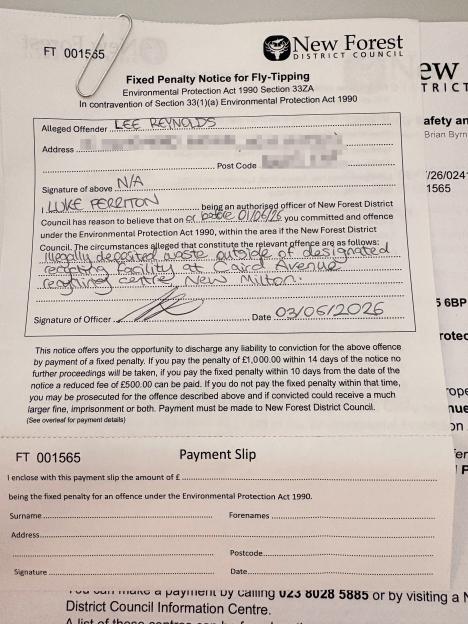 FT 001565
New Forest
DISTRICT COUNCIL
Fixed Penalty Notice for Fly-Tipping
Environmental Protection Act 1990 Section 33ZA
In contravention of Section 33(1)(a) Environmental Protection Act 1990
Alleged Offender LEE REYNOLDS
Address
Post Code
Signature of above N/A
I LUKE FERRITON being an authorised officer of New Forest District
Council has reason to believe that on or before 01/06/26 you committed and offence
under the Environmental Protection Act 1990, within the area if the New Forest District
Council. The circumstances alleged that constitute the relevant offence are as follows:
Illegally deposited waste outside of designated
recycling facility at Caird Avenue
recycling centre New Milton.
Signature of Officer Date 03/06/2026
This notice offers you the opportunity to discharge any liability to conviction for the above offence
by payment of a fixed penalty. If you pay the penalty of £1,000.00 within 14 days of the notice no
further proceedings will be taken, if you pay the fixed penalty within 10 days from the date of the
notice a reduced fee of £500.00 can be paid. If you do not pay the fixed penalty within that time,
you may be prosecuted for the offence described above and if convicted could receive a much
larger fine, imprisonment or both. Payment must be made to New Forest District Council.
(See overleaf for payment details)
FT 001565 Payment Slip
I enclose with this payment slip the amount of £
being the fixed penalty for an offence under the Environmental Protection Act 1990.
Surname Forenames
Address
Postcode
Signature Date
You can make a payment by calling 023 8028 5885 or by visiting a N
District Council Information Centre.
ew
TRICT
afety an
Brian Byrn
/26/0241
1565
5 6BP
rotec
rope
nue
on
fer